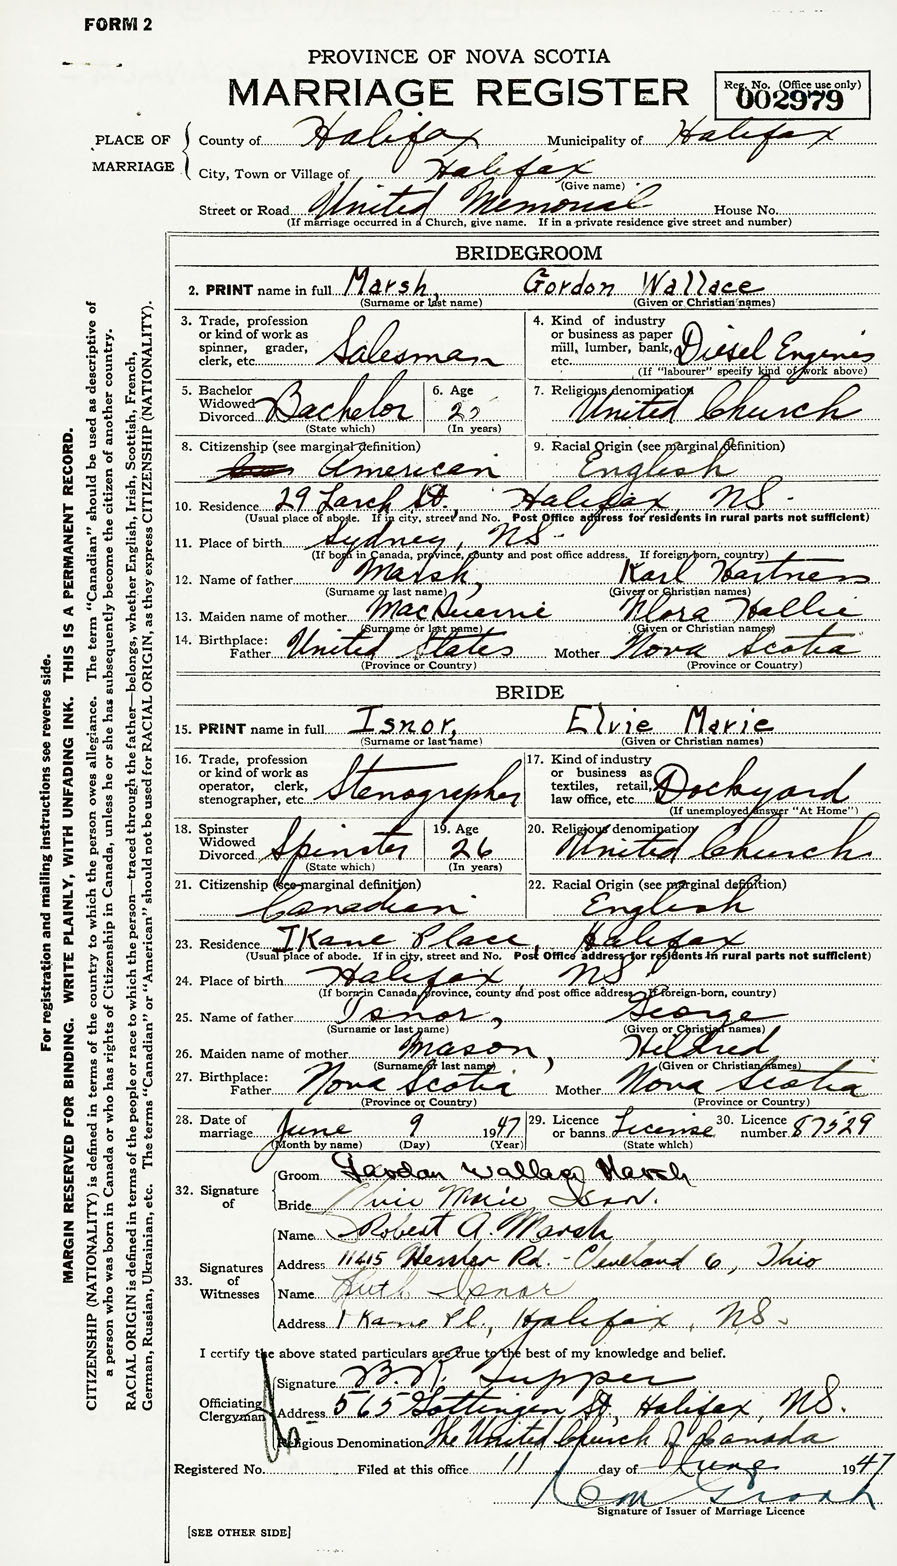 FORM 2
PROVINCE OF NOVA SCOTIA
MARRIAGE REGISTER
Reg. No. (Office use only)
002979
PLACE OF MARRIAGE
County of Halifax Municipality of Halifax
City, Town or Village of Halifax
(Give name)
Street or Road United Memorial House No.
(If marriage occurred in a Church, give name. If in a private residence give street and number)
BRIDEGROOM
2. PRINT name in full Marsh, Gordon Wallace
(Surname or last name) (Given or Christian names)
3. Trade, profession or kind of work as spinner, grader, clerk, etc. Salesman
4. Kind of industry or business as paper mill, lumber, bank, etc. Diesel Engines
(If "labourer" specify kind of work above)
5. Bachelor Widowed Divorced Bachelor
(State which)
6. Age
(In years)
7. Religious denomination
United Church
8. Citizenship (see marginal definition)
American
9. Racial Origin (see marginal definition)
English
10. Residence 29 Larch St., Halifax NS-
(Usual place of abode. If in city, street and No. Post Office address for residents in rural parts not sufficient)
11. Place of birth Sydney, NS-
(If born in Canada, province, county and post office address. If foreign born, country)
12. Name of father Marsh, Karl
(Surname or last name) (Given or Christian names)
13. Maiden name of mother Flora Hallie
(Surname or last name) (Given or Christian names)
14. Birthplace: Father United States Mother Nova Scotia
(Province or Country) (Province or Country)
BRIDE
15. PRINT name in full Isnor, Elvie Marie
(Surname or last name) (Given or Christian names)
16. Trade, profession or kind of work as operator, clerk, stenographer, etc. Stenographer
17. Kind of industry or business as textiles, retail, law office, etc. Dockyard
(If unemployed answer "At Home")
18. Spinster Widowed Divorced Spinster
(State which)
19. Age 26
(In years)
20. Religious denomination
United Church
21. Citizenship (see marginal definition)
Canadian
22. Racial Origin (see marginal definition)
English
23. Residence 1 Kane Place, Halifax
(Usual place of abode. If in city, street and No. Post Office address for residents in rural parts not sufficient)
24. Place of birth Halifax, NS
(If born in Canada, province, county and post office address. If foreign-born, country)
25. Name of father Isnor, George
(Surname or last name) (Given or Christian names)
26. Maiden name of mother Mason, Hildred
(Surname or last name) (Given or Christian names)
27. Birthplace: Father Nova Scotia Mother Nova Scotia
(Province or Country) (Province or Country)
28. Date of marriage June 9 1947
(Month by name) (Day) (Year)
29. Licence or banns License
(State which)
30. Licence number 87529
32. Signature of
Groom Gordon Wallace Marsh
Bride Elvie Marie Isnor.
33. Signatures of Witnesses
Name Robert A. Marsh
Address 11415 Rd. - Cleveland 6, Ohio
Name Ruth Isnor
Address 1 Kane Pl., Halifax, NS-
I certify the above stated particulars are true to the best of my knowledge and belief.
Officiating Clergyman
Signature
Address 565 Gottingen St, Halifax, NS.
Religious Denomination The United Church of Canada
Registered No. Filed at this office 11 day of June 1947
Signature of Issuer of Marriage Licence
[SEE OTHER SIDE]
For registration and mailing instructions see reverse side.
MARGIN RESERVED FOR BINDING. WRITE PLAINLY, WITH UNFADING INK. THIS IS A PERMANENT RECORD.
CITIZENSHIP (NATIONALITY) is defined in terms of the country to which the person owes allegiance. The term "Canadian" should be used as descriptive of
a person who was born in Canada or who has rights of Citizenship in Canada, unless he or she has subsequently become the citizen of another country.
RACIAL ORIGIN is defined in terms of the people or race to which the person—traced through the father—belongs, whether English, Irish, Scottish, French,
German, Russian, Ukrainian, etc. The terms "Canadian" or "American" should not be used for RACIAL ORIGIN, as they express CITIZENSHIP (NATIONALITY).